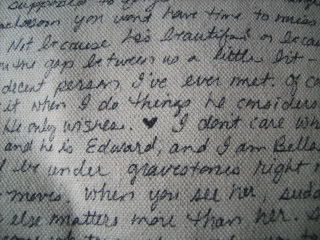 supposed to
you wont have time to miss
Not because he's beautiful or becau
the gap between us a little bit -
decent person I've ever met. Of co
it when I do things he considers
He only wishes. ♥ I don't care wh
and he is Edward, and I am Bella
be under gravestones right n
moves. when you see her, sudd
else matters more than her. s